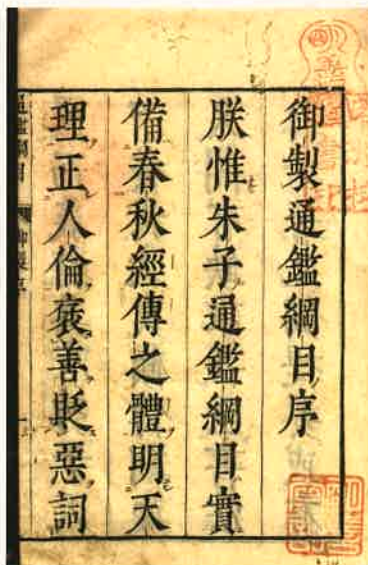 御製通鑑綱目序
朕惟朱子通鑑綱目實
備春秋經傳之體明天
理正人倫褒善貶惡詞